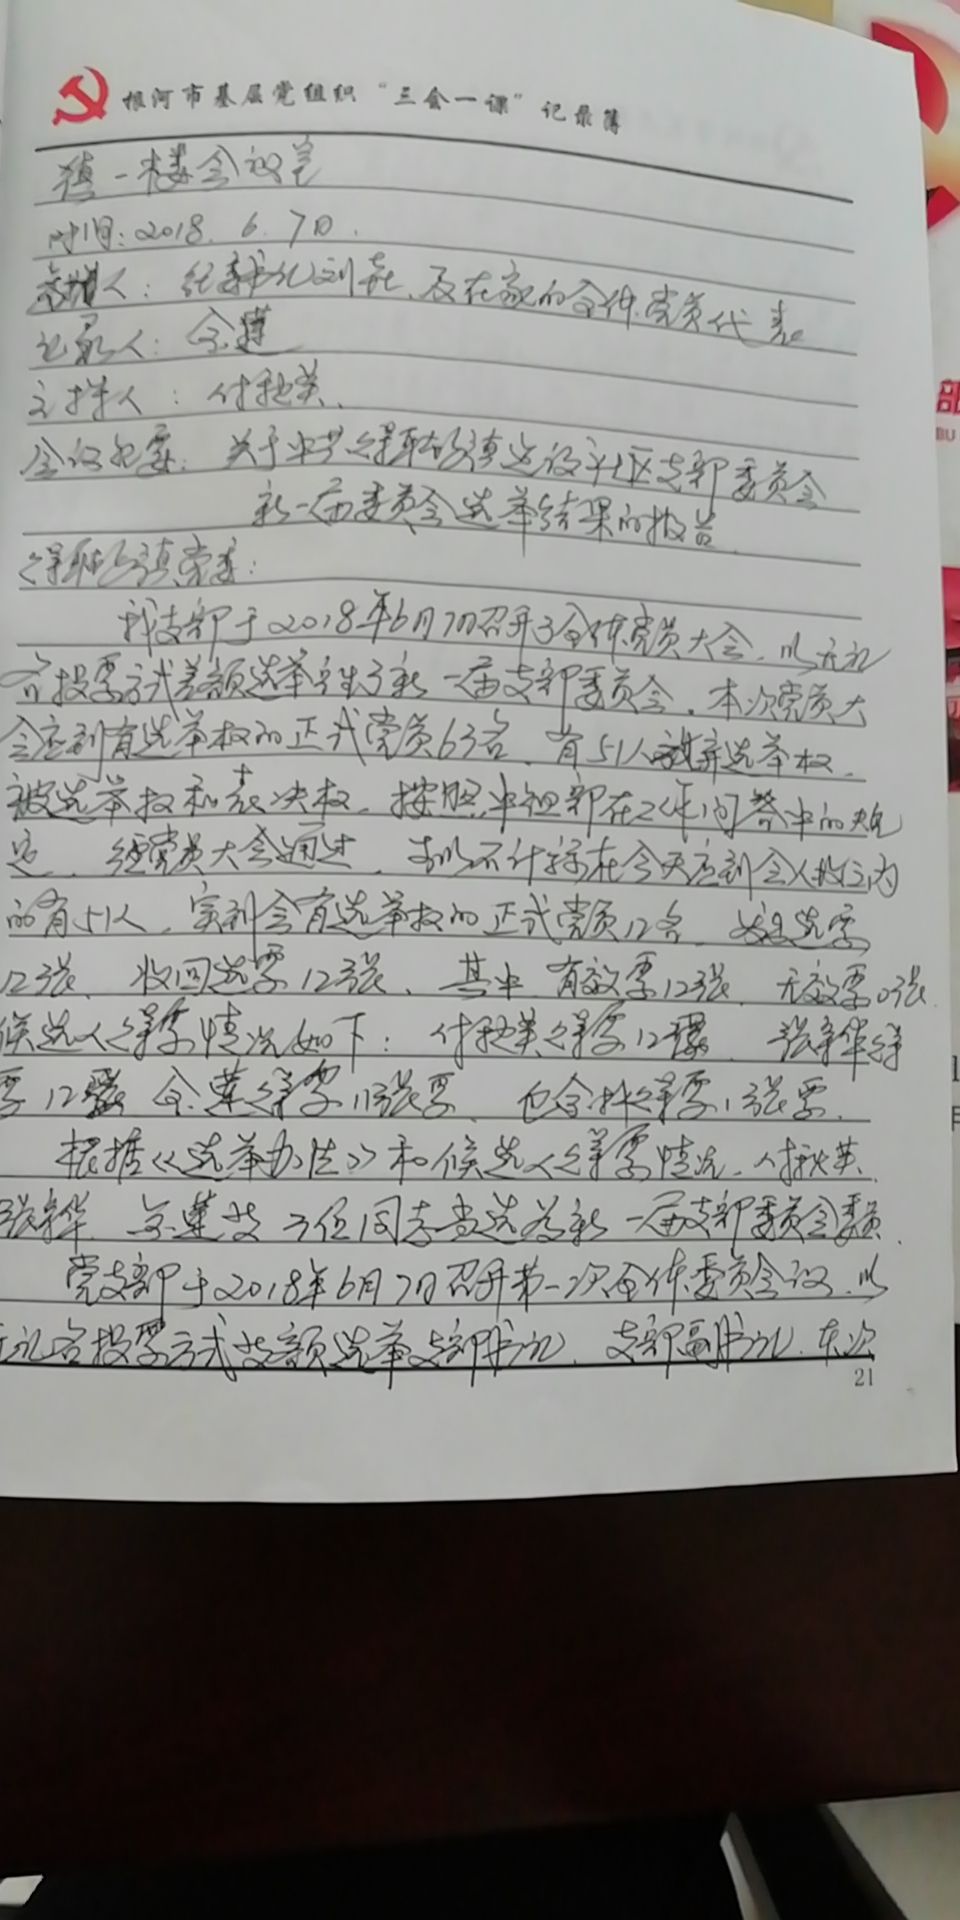 根河市基层党组织“三会一课”记录簿
镇一楼会议室
时间:2018.6.7日.
人:纪委书记刘 、及在家的全体党员代表
记录人:
主持人:付艳英.
会议纪要:关于中共得耳布尔镇建设社区支部委员会
新一届委员会选举结果的报告
得耳布尔镇党委:
我支部于2018年6月7日召开了全体党员大会,以无记
名投票方式差额选举产生了新一届支部委员会,本次党员大
会应到有选举权的正式党员63名,有51人 选举权,
被选举权和表决权,按照中组部在 问答中的规
定,经党员大会通过,可以不计算在今天应到会人数之内
的有51人,实到会有选举权的正式党员12名,发出选票
12张,收回选票12张,其中,有效票12张,无效票0张.
候选人得票情况如下:付艳英得票12张,张 华得
票12张 莲得票11张票, 得票1张票.
根据《选举办法》和候选人得票情况,付艳英
张 华 莲 三位同志当选为新一届支部委员会委员.
党支部于2018年6月7日召开第一次全体委员会议,以
无记名投票方式 额选举支部书记,支部副书记.本次
21
部
BU